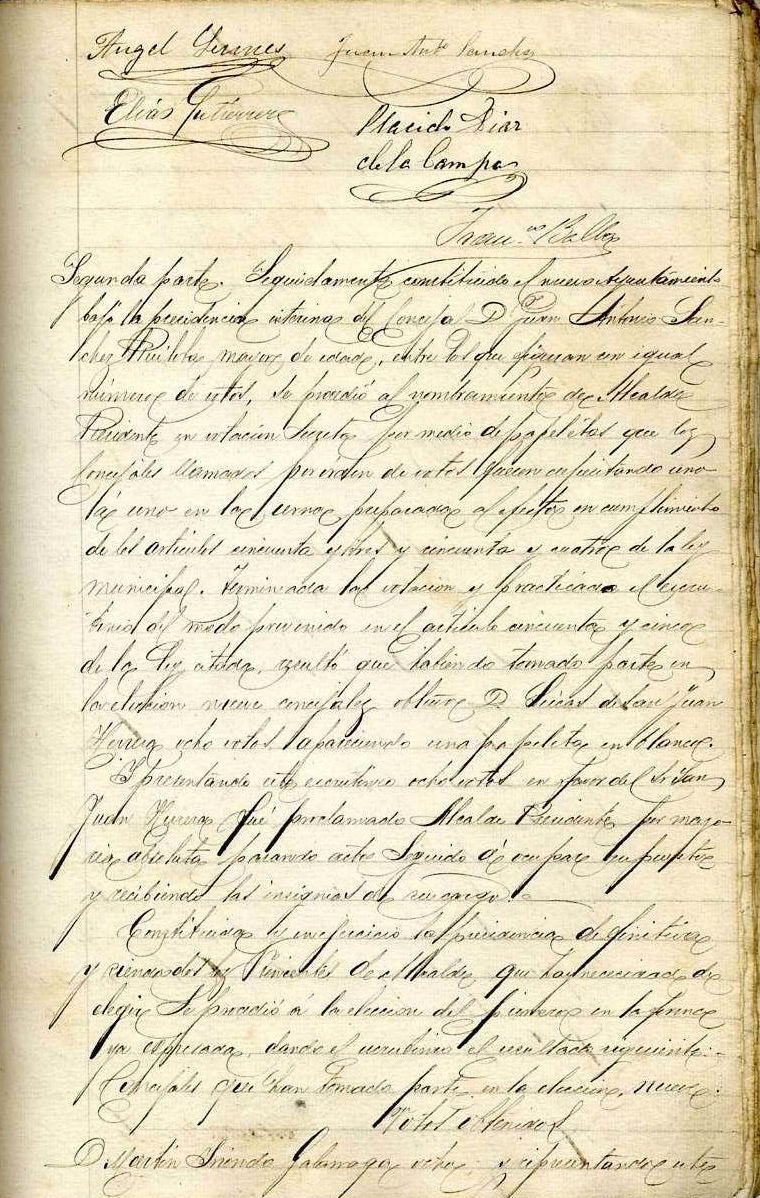 Angel Juan Antº Sanchez
Elías Gutierrez
Placido Diaz
de la Campa
Franco Balbas
Segunda parte. Seguidamente constituido el nuevo Ayuntamiento
bajo la presidencia interina del Concejal D. Juan Antonio San-
chez mayor de edad, entre los que figuran con igual
número de votos, se procedió al nombramiento de Alcalde
Presidente en votacion secreta por medio de papeletas que los
Concejales llamados por orden de votos fueron depositando uno
á uno en la urna preparada al efecto en cumplimiento
de los articulos cincuenta y tres y cincuenta y cuatro de la ley
municipal. Terminada la votacion y practicado el escru-
tinio del modo prevenido en el articulo cincuenta y cinco
de la Ley citada, resultó que habiendo tomado parte en
la eleccion nueve concejales obtuvo D. Lucas de San Juan
Herrera ocho votos, apareciendo una papeleta en blanco.
Y presentando este escrutinio ocho votos en favor del Sr. San
Juan Herrera fué proclamado Alcalde Presidente por mayo-
ria absoluta pasando acto seguido á ocupar su puesto
y recibiendo las insignias de su cargo.
Constituida y en ejercicio la presidencia definitiva
y siendo dos los Tenientes de Alcalde que hay necesidad de
elegir se procedió á la eleccion del primero en la forma
ya espresada, dando el escrutinio el resultado siguiente:
Concejales que han tomado parte en la eleccion, nueve:
Votos obtenidos
D. Martin Galarraga ocho; y representando este